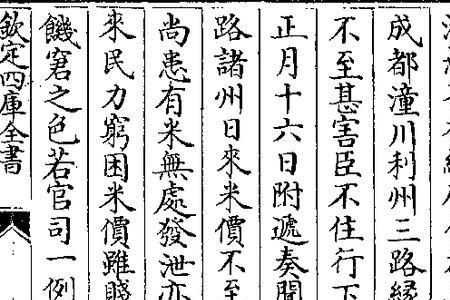 成都潼川利州三路縁
不至甚害臣不住行下
正月十六日附遞奏聞
路諸州日來米價不至
尚患有米無處發泄亦
來民力窮困米價雖賤
饑窘之色若官司一例
欽定四庫全書